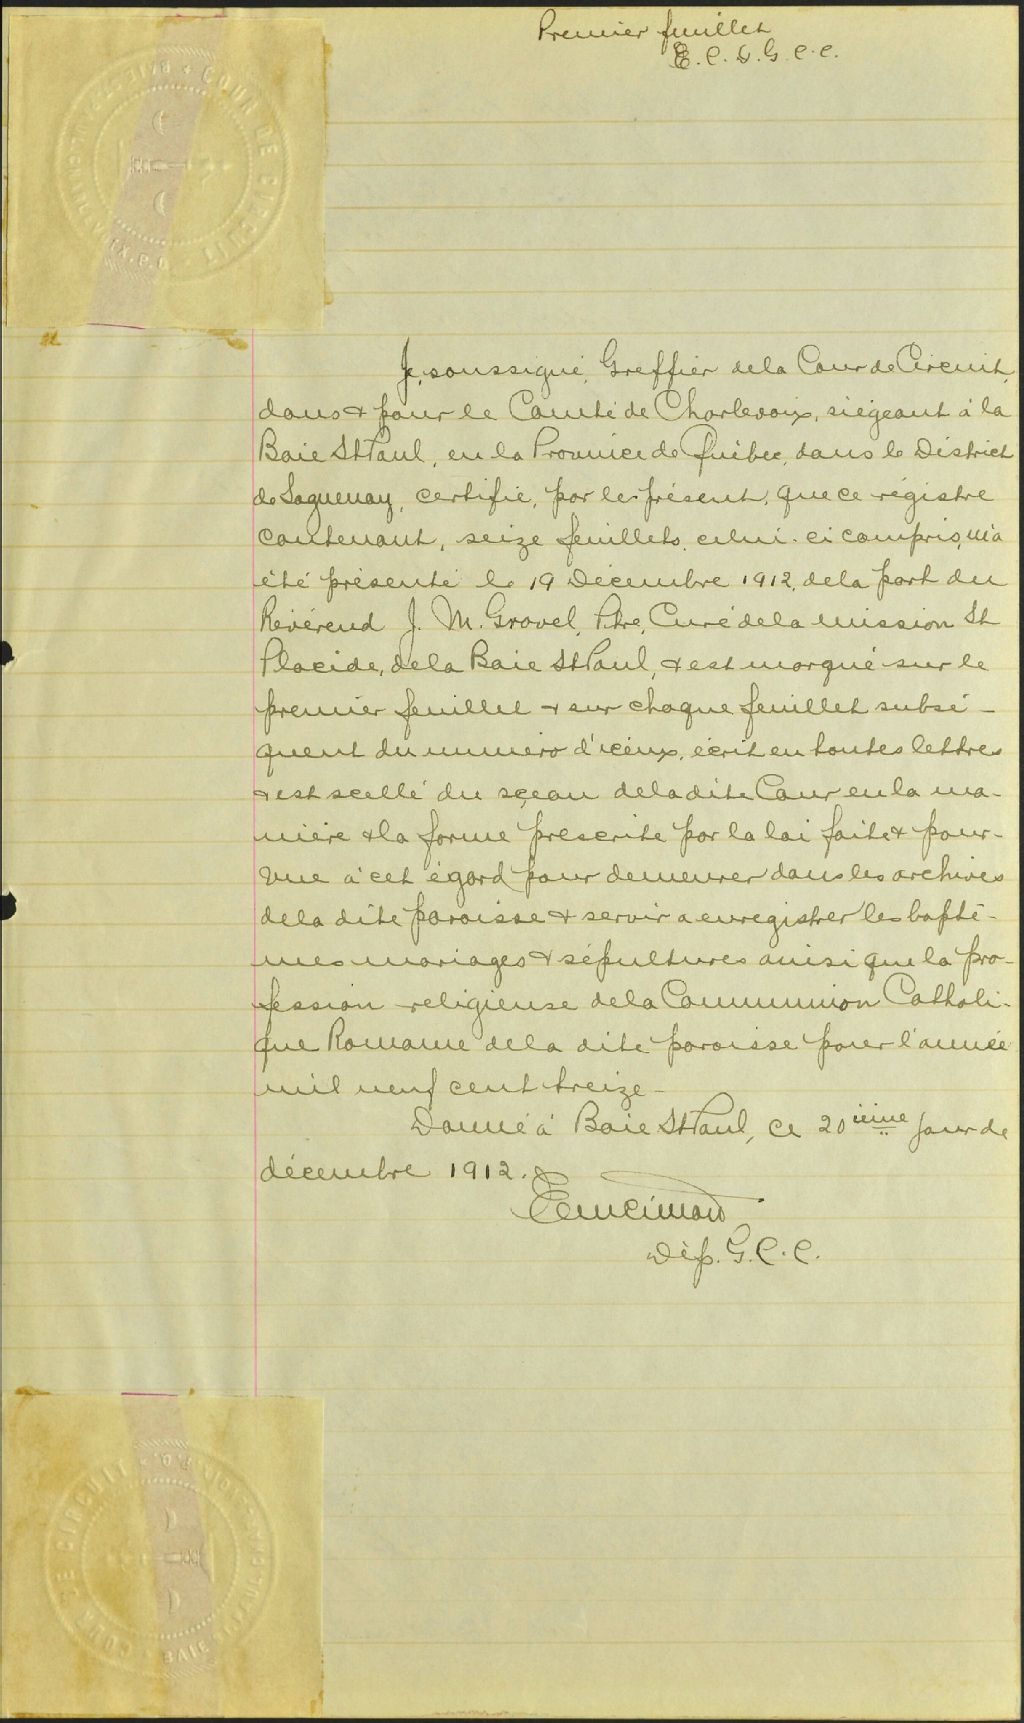 Premier feuillet
E. C. D. G. C. C.
COUR DE CIRCUIT
BAIE ST PAUL
Je, soussigné, Greffier de la Cour de Circuit,
dans & pour le Comté de Charlevoix, siégeant à la
Baie St Paul, en la Province de Québec, dans le District
de Saguenay, certifie, par le présent, que ce régistre
contenant, seize feuillets, celui-ci compris, m'a
été présenté le 19 Décembre 1912, de la part du
Révérend J. M. Gravel, Ptre, Curé de la mission St
Placide, de la Baie St Paul, & est marqué sur le
premier feuillet & sur chaque feuillet subsé-
quent du numéro d'iceux, écrit en toutes lettres
& est scellé du sceau de la dite Cour en la ma-
nière & la forme prescrite par la loi faite & pour-
vue à cet égard pour demeurer dans les archives
de la dite paroisse & servir a enregistrer les baptê-
mes mariages & sépultures ainsi que la pro-
fession religieuse de la Communion Catholi-
que Romaine de la dite paroisse pour l'année
mil neuf cent treize -
Donné à Baie St Paul, ce 20 ième jour de
décembre 1912.
Dép. G. C. C.
DE CIRCUIT
COUR
BAIE ST PAUL